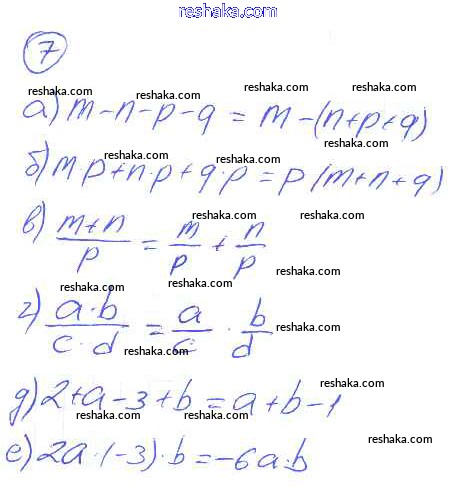 reshaka.com
7
reshaka.com reshaka.com reshaka.com
а) m - n - p - q = m - (n + p + q)
reshaka.com reshaka.com reshaka.com
б) m p + n · p + q · p = p (m + n + q)
reshaka.com reshaka.com
в) (m+n)/p = m/p + n/p
reshaka.com reshaka.com
г) (a · b)/(c · d) = a/c · b/d
reshaka.com reshaka.com
reshaka.com
д) 2 + a - 3 + b = a + b - 1
reshaka.com reshaka.com reshaka.com
е) 2a · (-3) · b = -6a · b